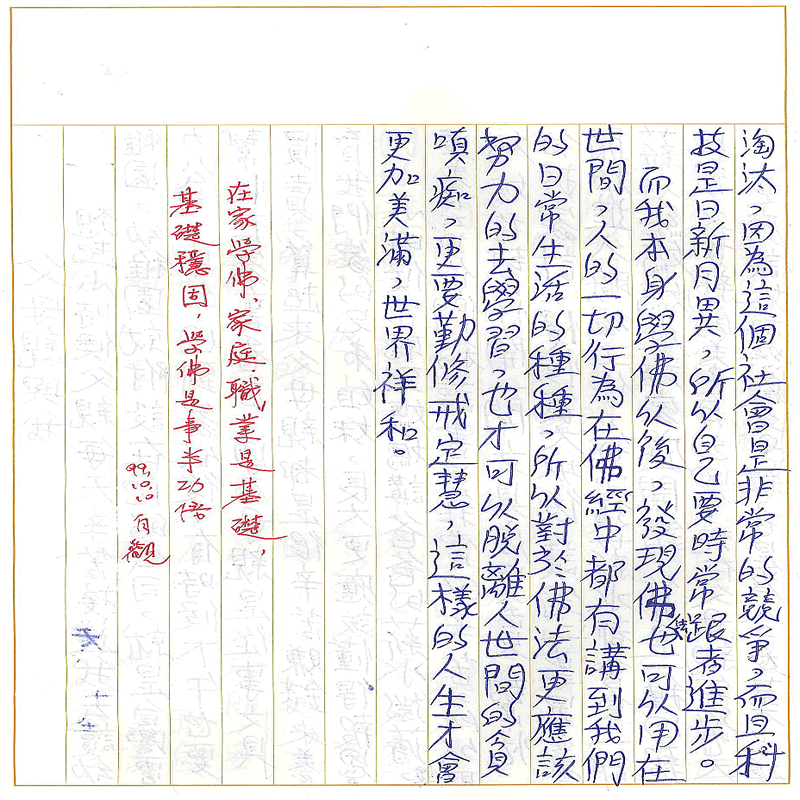 淘汰，因為這個社會是非常的競爭，而且科
技是日新月異，所以自己要時常跟者進步。
而我本身學佛以後，發現佛法也可以用在
世間，人的一切行為在佛經中都有講到我們
的日常生活的種種，所以對於佛法更應該
努力的去學習，也才可以脫離人世間的貪
嗔痴，更要勤修戒定慧，這樣的人生才會
更加美滿，世界祥和。
在家學佛、家庭、職業是基礎，
基礎穩固，學佛是事半功倍
99.10.10 自觀